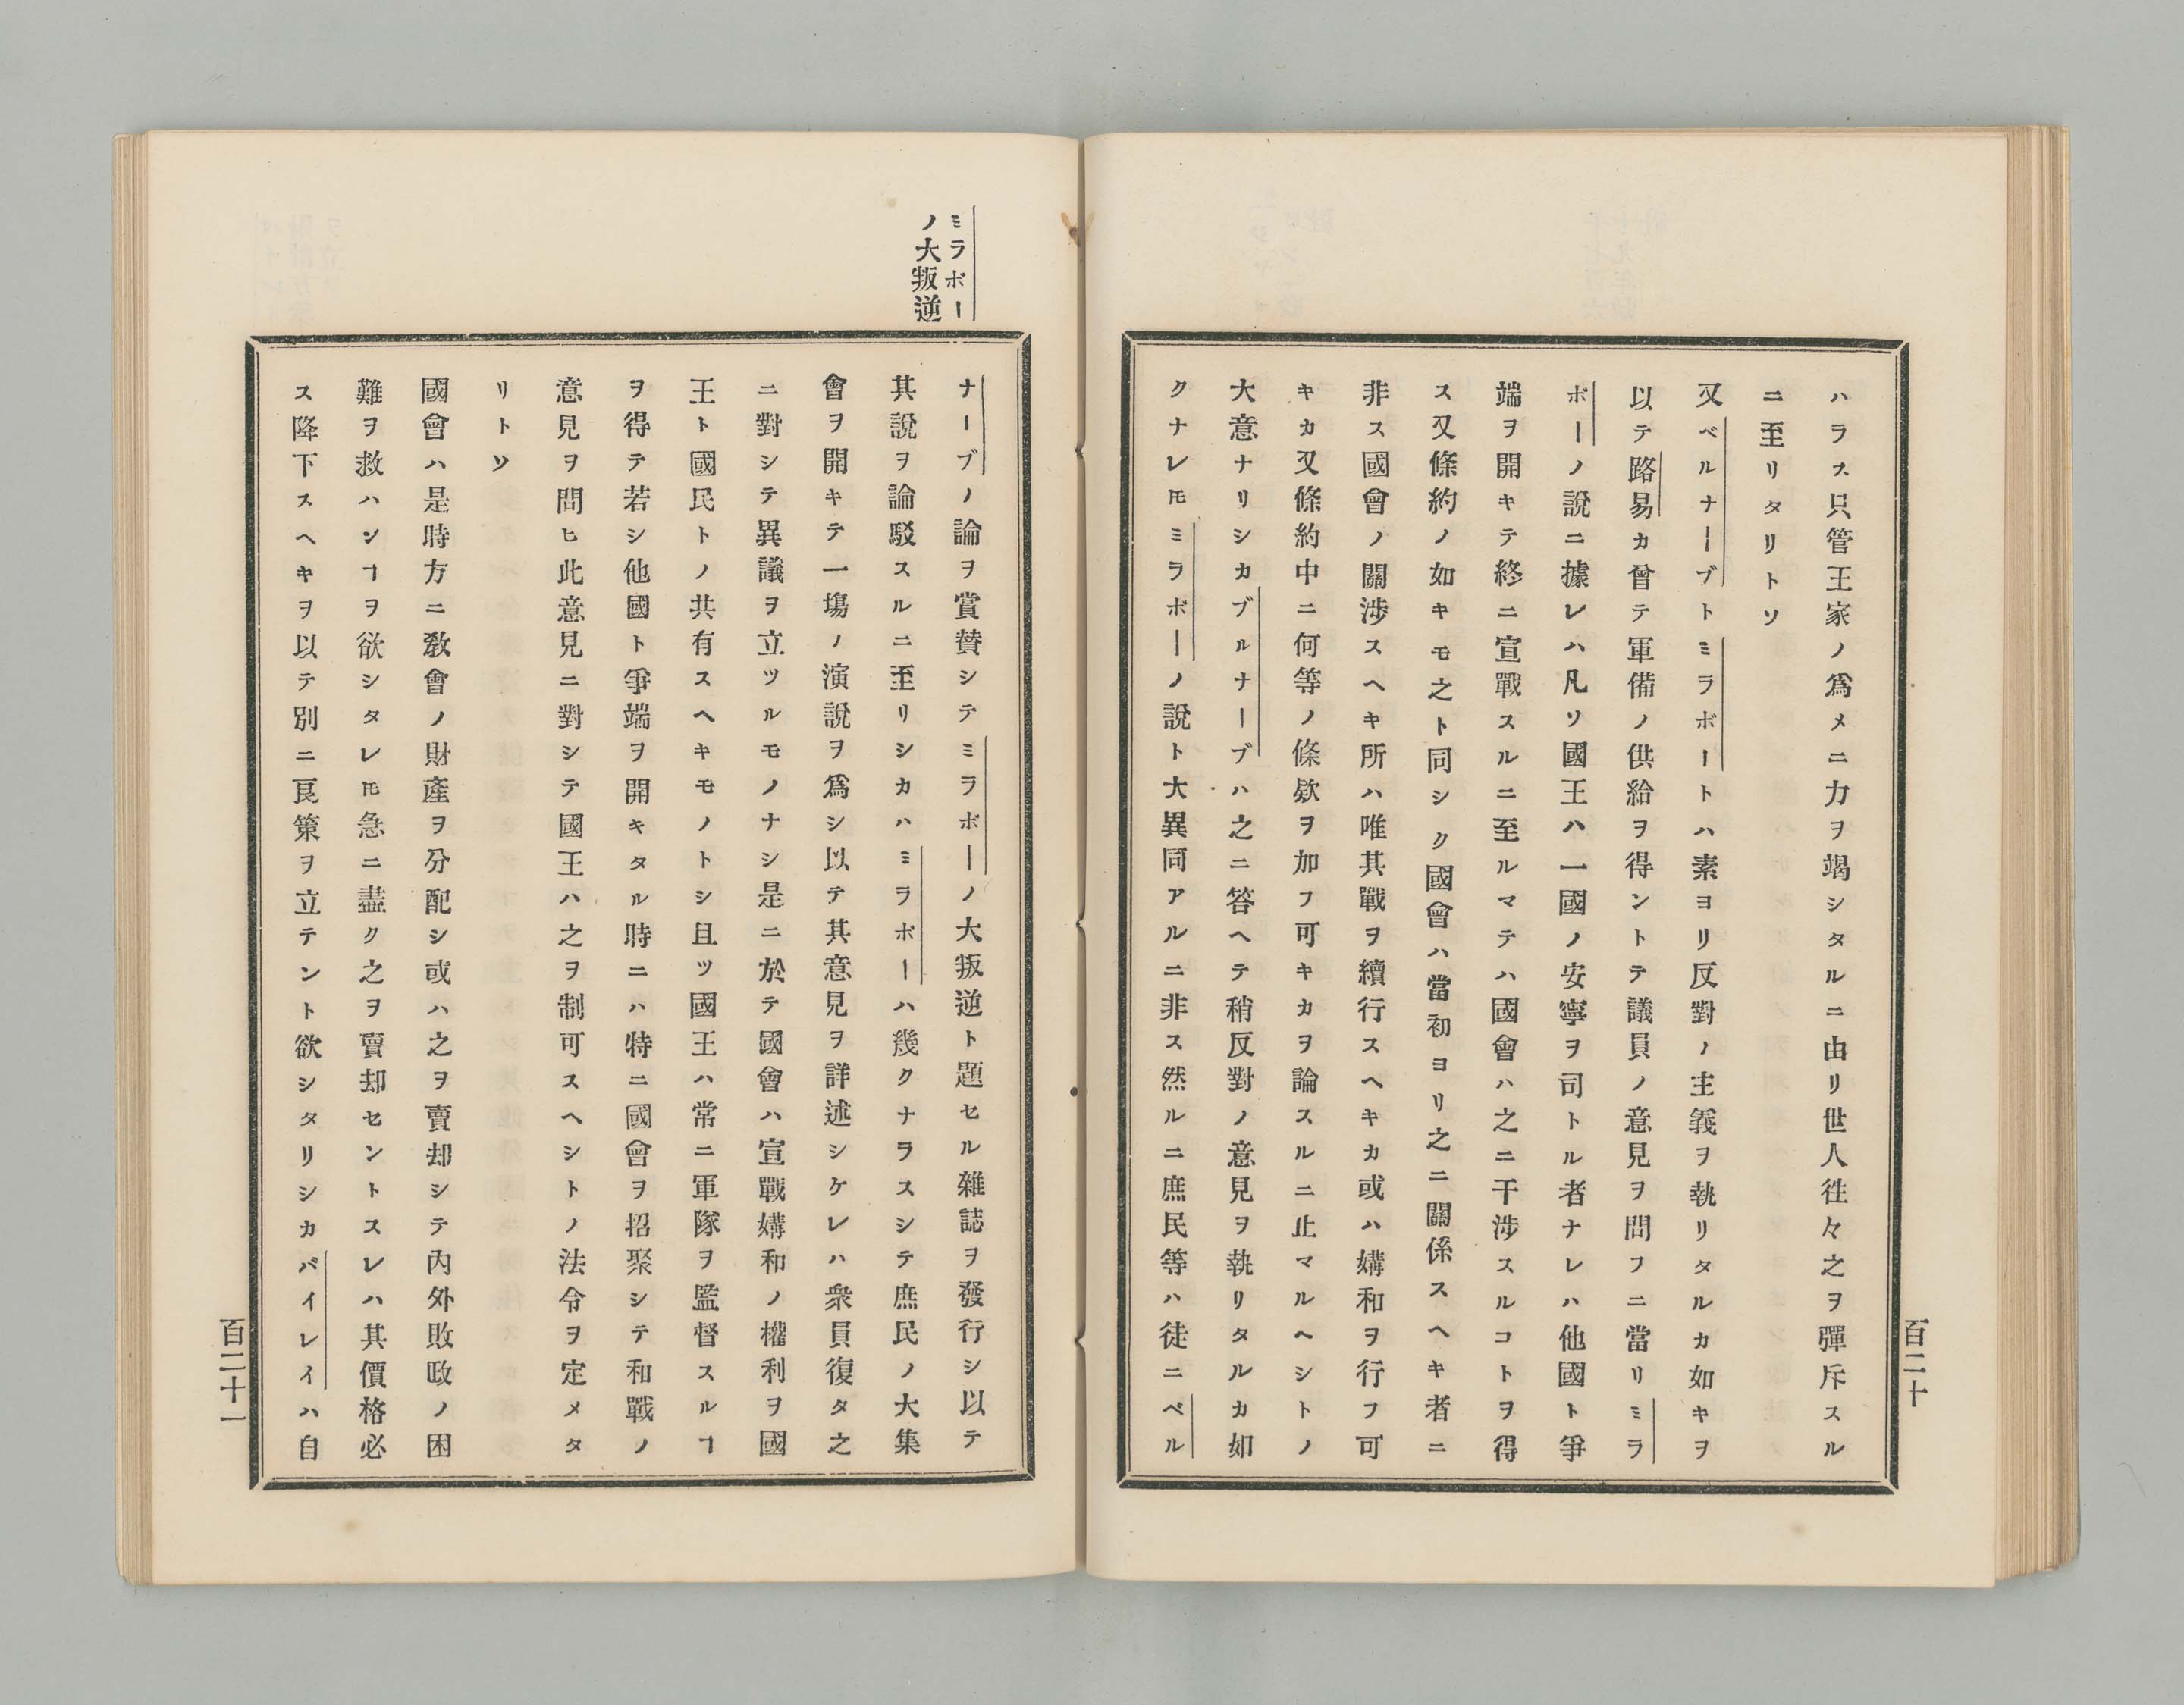 ハラス只管王家ノ爲メニ力ヲ竭シタルニ由リ世人徃々之ヲ彈斥スル
ニ至リタリトソ
又ベルナーブトミラボートハ素ヨリ反對ノ主義ヲ執リタルカ如キヲ
以テ路易カ曾テ軍備ノ供給ヲ得ントテ議員ノ意見ヲ問フニ當リミラ
ボーノ說ニ據レハ凡ソ國王ハ一國ノ安寧ヲ司トル者ナレハ他國ト爭
端ヲ開キテ終ニ宣戰スルニ至ルマテハ國會ハ之ニ干涉スルコトヲ得
ス又條約ノ如キモ之ト同シク國會ハ當初ヨリ之ニ關係スヘキ者ニ
非ス國會ノ關涉スヘキ所ハ唯其戰ヲ續行スヘキカ或ハ媾和ヲ行フ可
キカ又條約中ニ何等ノ條欵ヲ加フ可キカヲ論スルニ止マルヘシトノ
大意ナリシカブルナーブハ之ニ答ヘテ稍反對ノ意見ヲ執リタルカ如
クナレ𪜈ミラボーノ說ト大異同アルニ非ス然ルニ庶民等ハ徒ニベル
百二十
ミラボー
ノ大叛逆
ナーブノ論ヲ賞賛シテミラボーノ大叛逆ト題セル雜誌ヲ發行シ以テ
其說ヲ論駁スルニ至リシカハミラボーハ幾クナラスシテ庶民ノ大集
會ヲ開キテ一塲ノ演說ヲ爲シ以テ其意見ヲ詳述シケレハ衆員復タ之
ニ對シテ異議ヲ立ツルモノナシ是ニ於テ國會ハ宣戰媾和ノ權利ヲ國
王ト國民トノ共有スヘキモノトシ且ツ國王ハ常ニ軍隊ヲ監督スルヿ
ヲ得テ若シ他國ト爭端ヲ開キタル時ニハ特ニ國會ヲ招聚シテ和戰ノ
意見ヲ問ヒ此意見ニ對シテ國王ハ之ヲ制可スヘシトノ法令ヲ定メタ
リトソ
國會ハ是時方ニ敎會ノ財產ヲ分配シ或ハ之ヲ賣却シテ內外敗政ノ困
難ヲ救ハンヿヲ欲シタレ𪜈急ニ盡ク之ヲ賣却セントスレハ其價格必
ス降下スヘキヲ以テ別ニ良策ヲ立テント欲シタリシカバイレイハ自
百二十一